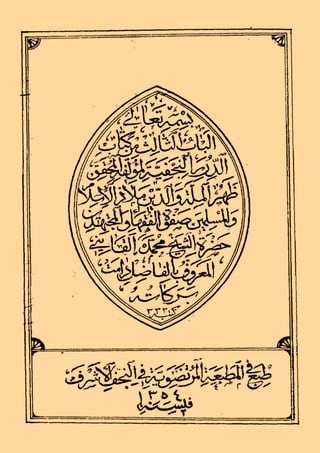 بسمه تعالى
الباب الثالث من كتاب
الدرر النجفية لمؤلفه المحقق
ظهر الملة والدين ملاذ الإسلام
والمسلمين صفوة الفقهاء والمجتهدين
حضرة الشيخ محمد القائني
المعروف بالفاضل دامت
بركاته
طبع في المطبعة المرتضوية في النجف الأشرف
١٣٥٤